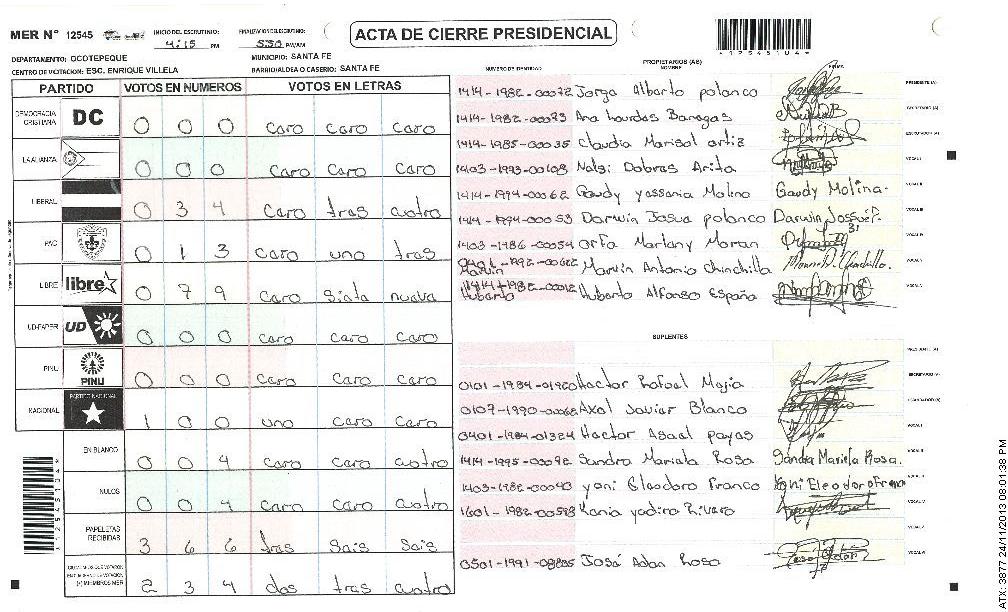 MER Nº 12545
INICIO DEL ESCRUTINIO:
4:15 PM
FINALIZACION DEL ESCRUTINIO:
5:30 PM/AM
ACTA DE CIERRE PRESIDENCIAL
1 2 5 4 5 1 0 4
DEPARTAMENTO: OCOTEPEQUE
MUNICIPIO: SANTA FE
CENTRO DE VOTACION: ESC. ENRIQUE VILLELA
BARRIO/ALDEA O CASERIO: SANTA FE
PARTIDO VOTOS EN NUMEROS VOTOS EN LETRAS
DEMOCRACIA CRISTIANA DC 0 0 0 caro caro caro
LA ALIANZA 0 0 0 caro caro caro
LIBERAL 0 3 4 caro tras cuatro
PAC 0 1 3 caro uno tras
LIBRE libre 0 7 9 caro siata nuava
UD-FAPER UD 0 0 0 caro caro caro
PINU PINU 0 0 0 caro caro caro
NACIONAL PARTIDO NACIONAL 1 0 0 uno caro caro
EN BLANCO 0 0 4 caro caro cuatro
NULOS 0 0 4 caro caro cuatro
PAPELETAS RECIBIDAS 3 6 6 tras sais sais
(+) MIEMBROS MER 2 3 4 dos tras cuatro
NUMERO DE IDENTIDAD
PROPIETARIOS (AS)
NOMBRE
FIRMA
1414-1982-00072 Jorga Alberto polanco PRESIDENTE (A)
1414-1982-00073 Ana Lourdas Banagas SECRETARIO (A)
1414-1985-00035 Claudia Marisol ortiz ESCRUTADOR (A)
1403-1993-00108 Nalsi Dolores Arita VOCAL I
1414-1994-00062 Gaudy yassania Molina Gaudy Molina. VOCAL II
1414-1994-00053 Darwin Josua polanco Darwin Jossué P. VOCAL III
1403-1986-00054 orfa Marlany Moran
Marvin Antonio Chinchilla
Huberto Alfonso España
SUPLENTES
PRESIDENTE (A)
0101-1984-01920 Hactor Rafael Majia SECRETARIO (A)
0107-1990-00068 Axal Javiar Blanco ESCRUTADOR (A)
0401-1984-01324 Hactor Asaal payas VOCAL I
1414-1995-00092 Sandra Mariala Rosa Sandra Mariela Rosa. VOCAL II
1403-1982-00040 yoni Eleodoro Franco Yoni Eleodoro Franco
1601-1982-00598 Kania yadira Rivara
0501-1991-08885 José Adan Rosa
ATX: 3877 24/11/2013 08:01:38 PM